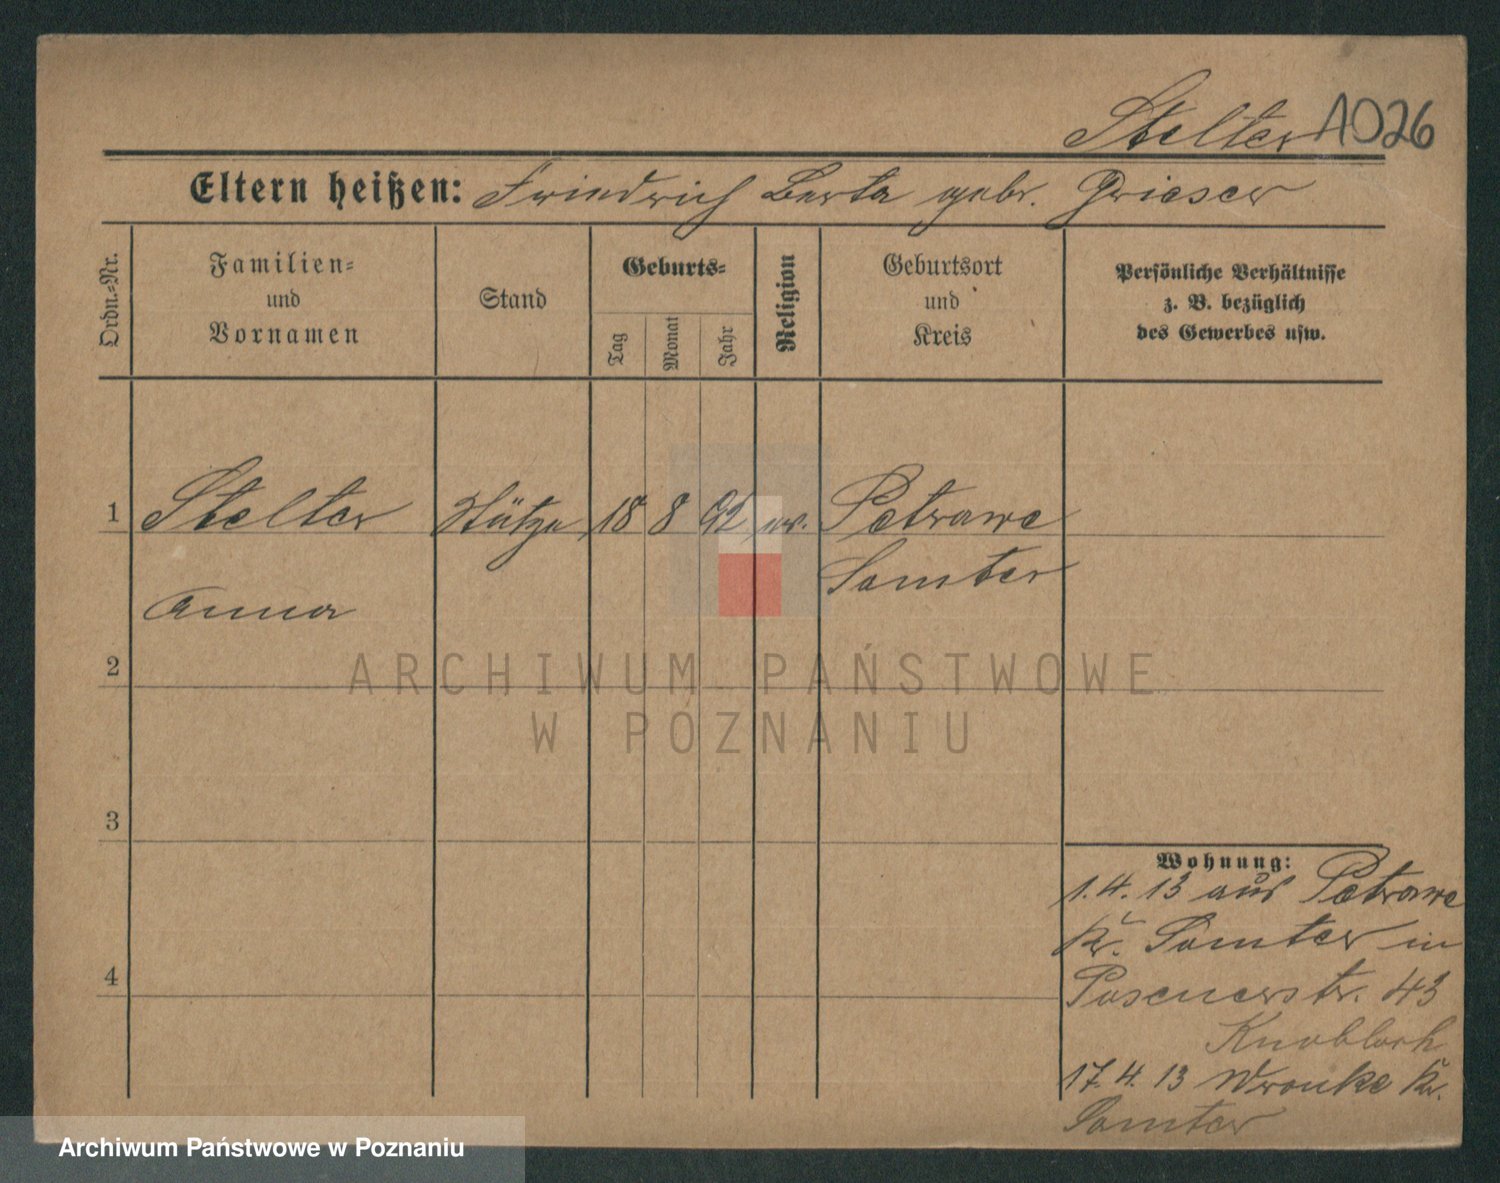 Stelter 1026
Eltern heißen: Friedrich Berta gebr. Grieser
Ordn.-Nr.
Familien-
und
Vornamen
Stand
Geburts-
Tag
Monat
Jahr
Religion
Geburtsort
und
Kreis
Persönliche Verhältnisse
z. B. bezüglich
des Gewerbes usw.
1 Stelter Stütze 18 8 92 ev. Petrawe
Samter
Anna
2
3
4
Wohnung:
1.4.13 aus Petrawe
Kr. Samter in
Posenerstr. 43
Knobloch
17.4.13 Wronke Kr.
Samter
ARCHIWUM PAŃSTWOWE
W POZNANIU
Archiwum Państwowe w Poznaniu